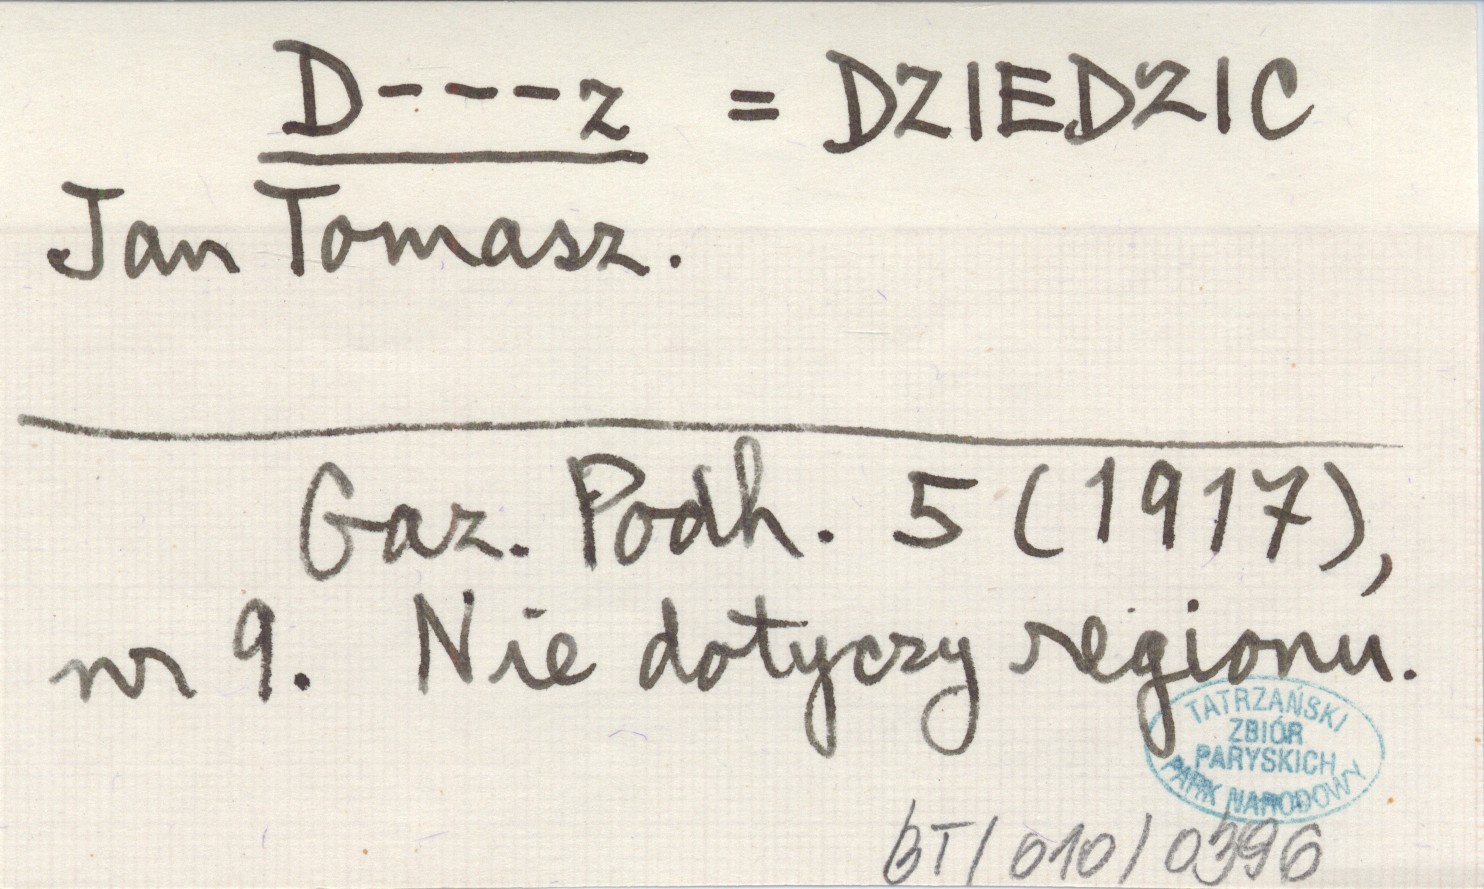 D---z = DZIEDZIC
Jan Tomasz.
Gaz. Podh. 5 (1917),
nr 9. Nie dotyczy regionu.
TATRZAŃSKI
ZBIÓR
PARYSKICH
PARK NARODOWY
BT/010/0396